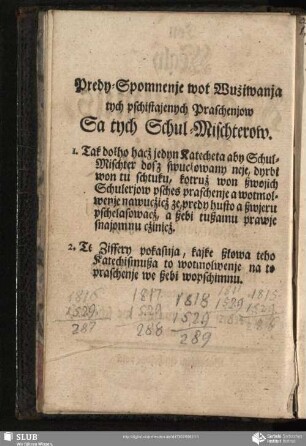 Predy-Spomnenje wot Wužiwanja
tych pschistajenych Praschenjow
Sa tych Schul-Mischterow.
1. Tak dolho hacž jedyn Katecheta aby Schul-
Mischter dosz szwucžowany neje, dyrbi
won tu schtuku, kotruž won szwojich
Schulerjow psches praschenje a wotmol-
wenje nawucžicž ze, predy husto a szwjeru
pschelasowacž, a szebi tuszamu prawje
snajomnu cžinicž.
2. Te Ziffery pokasuja, kajke szlowa teho
Katechismusza to wotmolwenje na to
praschenje we szebi wopschimnu.
1816 1817 1818 1815
1529 1529 1529 1529
287 288 289
SLUB